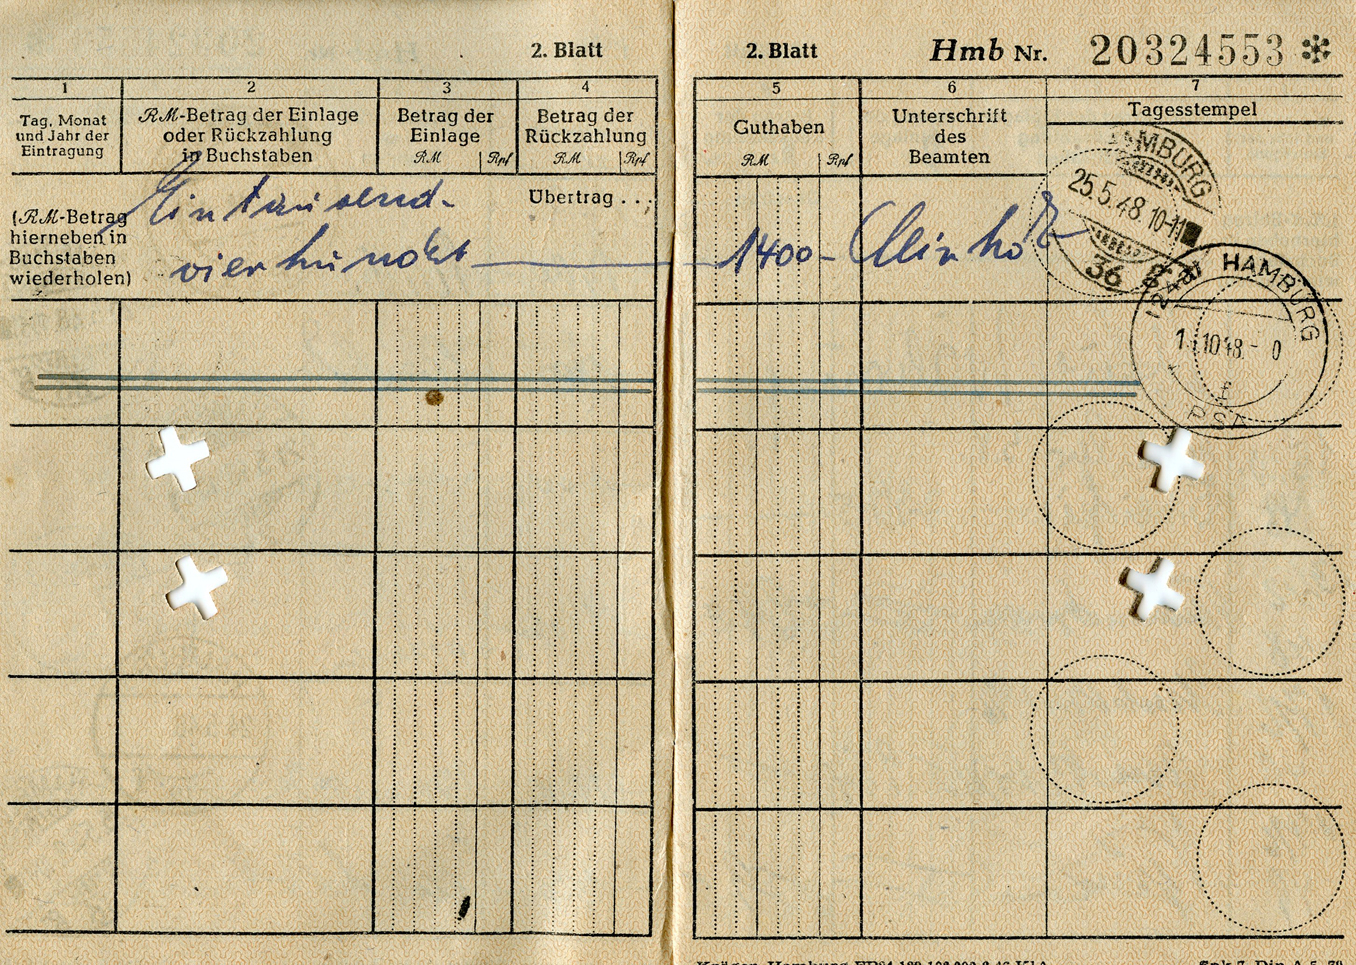 2. Blatt
1 2 3 4
Tag, Monat
und Jahr der
Eintragung
RM-Betrag der Einlage
oder Rückzahlung
in Buchstaben
Betrag der
Einlage
RM Rpf
Betrag der
Rückzahlung
RM Rpf
(RM-Betrag
hierneben in
Buchstaben
wiederholen)
Eintausend-
vierhundert
Übertrag . . .
2. Blatt Hmb Nr. 20324553 *
5 6 7
Guthaben
RM Rpf
Unterschrift
des
Beamten
Tagesstempel
1400-
HAMBURG
25.5.48.10-11
36
HAMBURG
PSA